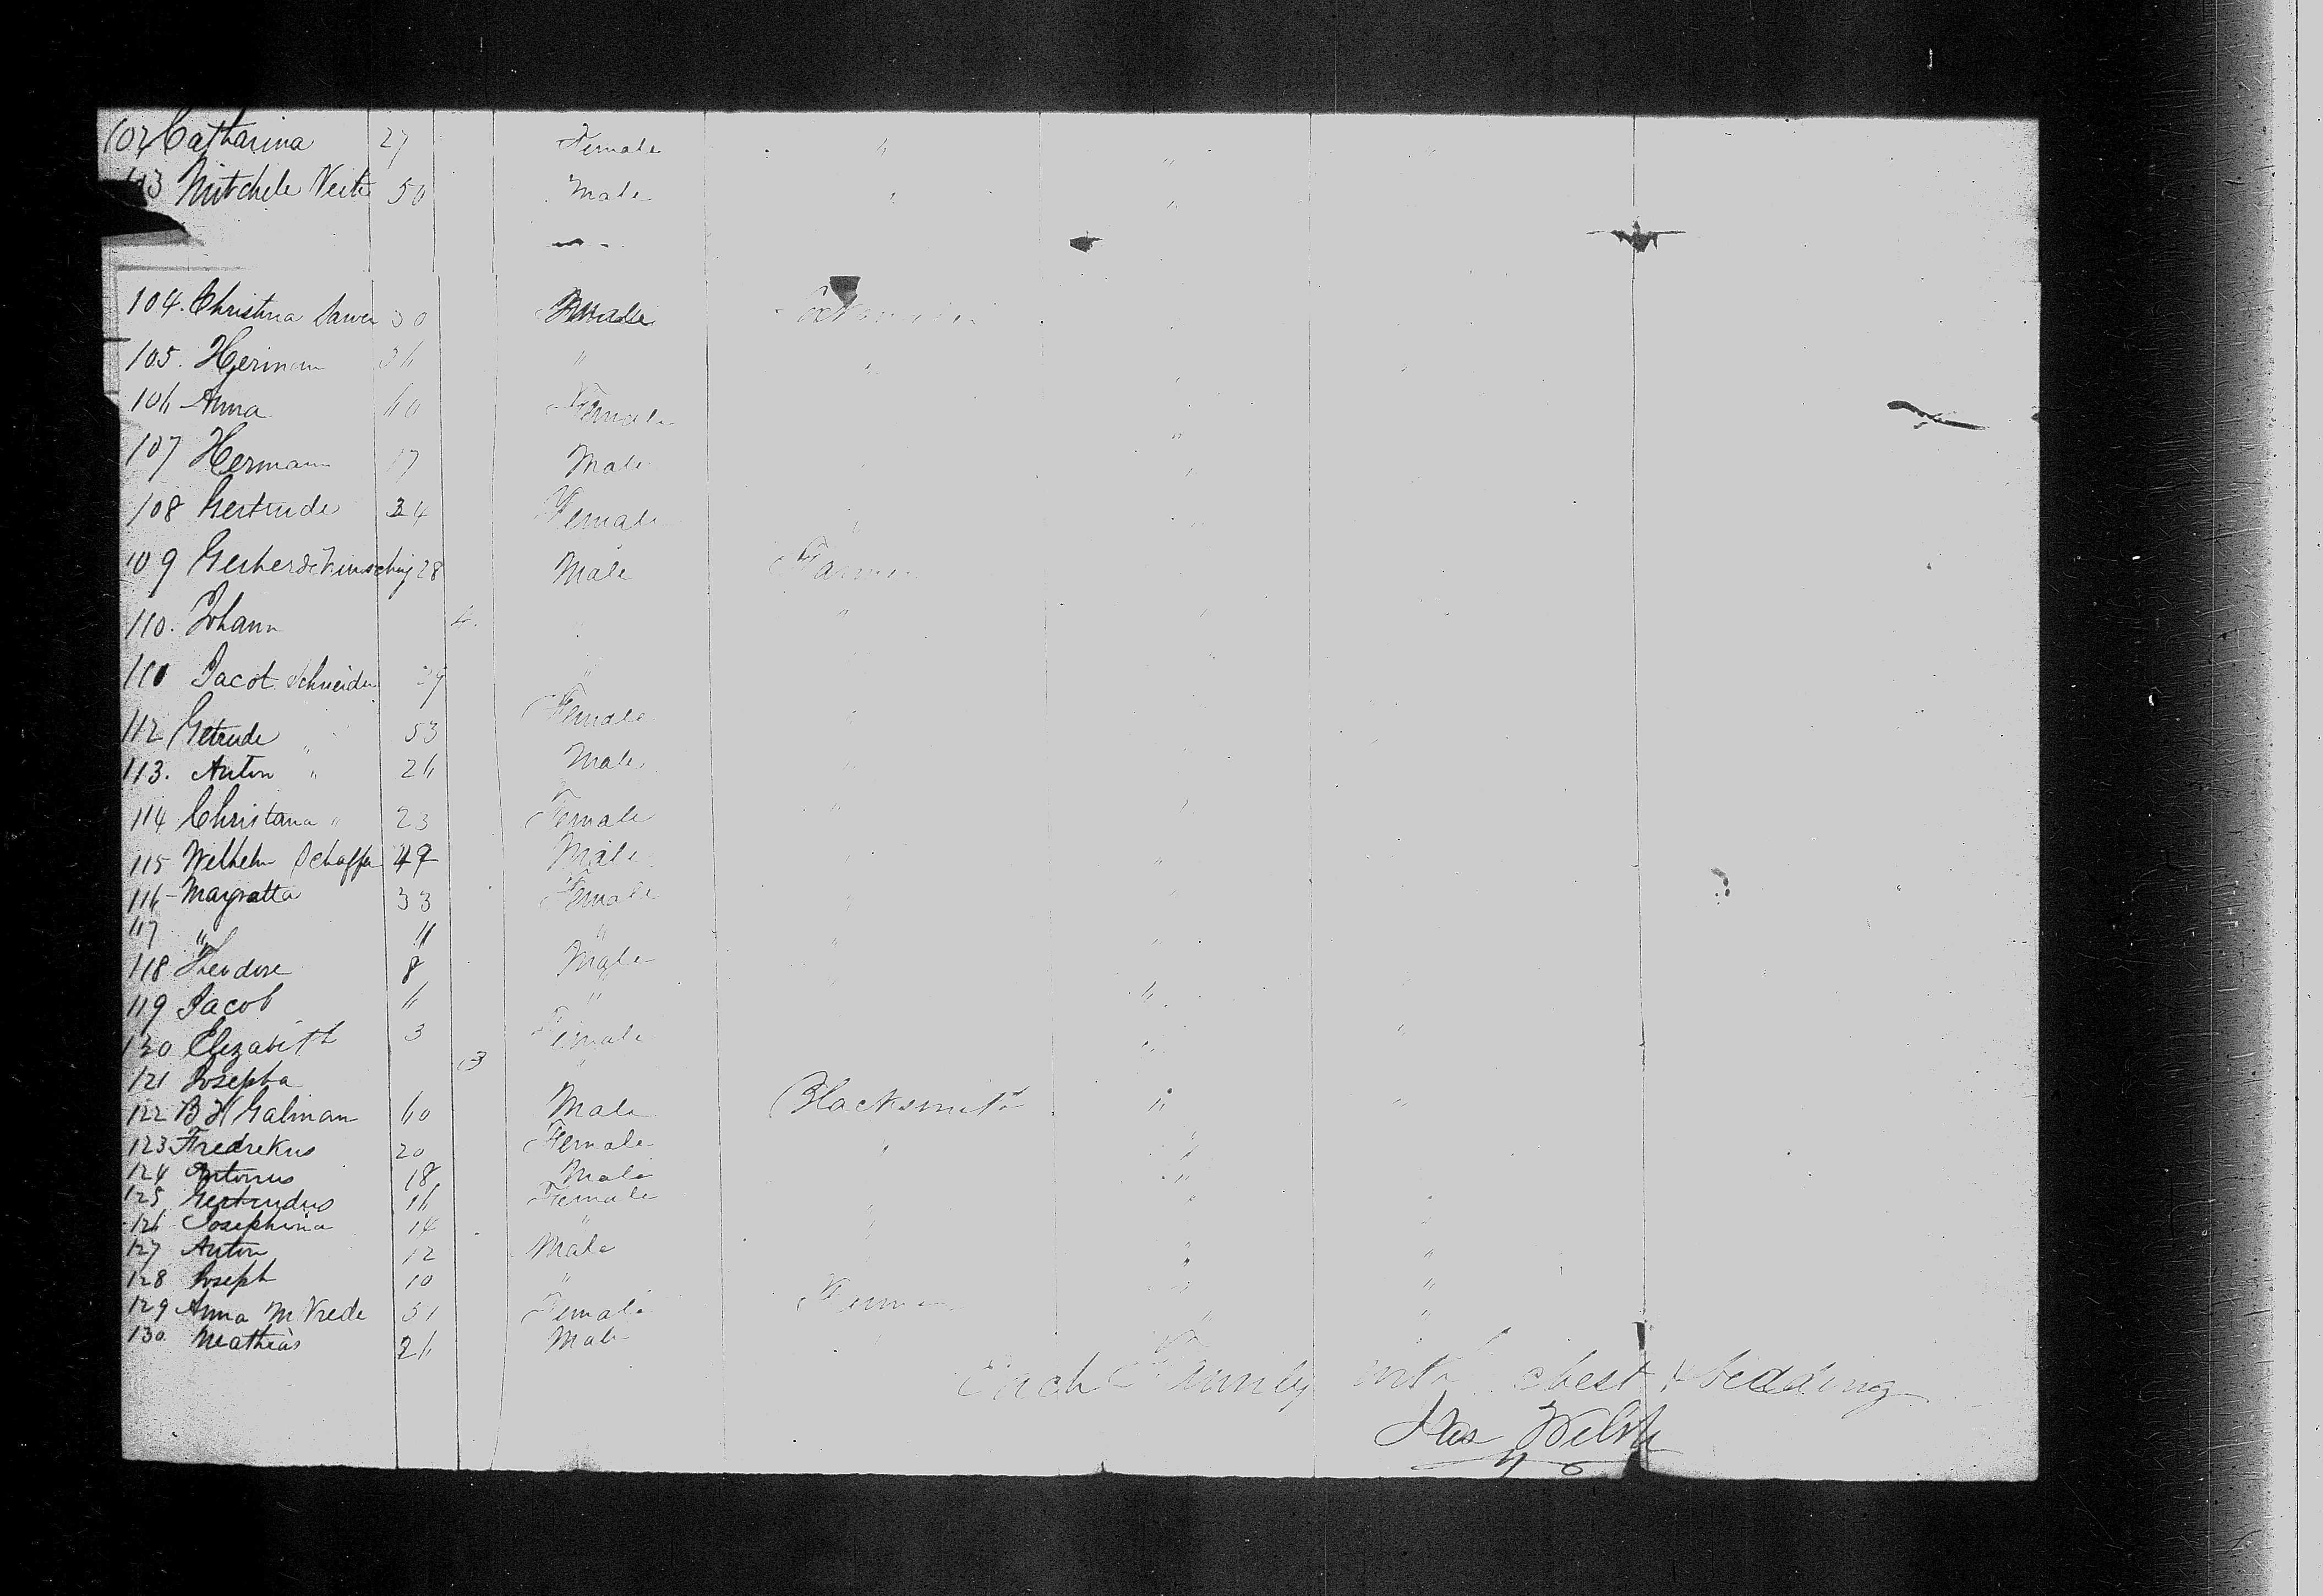 102 Catharina 27 Female " " "
103 Mitchele 50 Male " "
104. Christina 30
105. Herman 36 " "
106 Anna 60 Female
107 Hermann 17 Male "
108 Gertrude 34 Female
109 28 Male Farmer
110. Johann "
Jacob Schneider 29 "
112 Getrude " 53 Female
113. Anton " 26 Male
114 Christana " 23 Female "
115 Wilhelm Schaffer 47 Male "
116 - Margratta 33 Female
117 " 11 "
118 Theodore 8 Male
119 Jacob 6 " "
120 Elizabeth 3 Female " "
121 Josepha 3 "
122 B H Galman 60 Male Blacksmith " "
123 Fredrekus 20 Female " "
124 Antonius 18 Male "
125 Gertrudus 16 Female "
126 Josephina 14 "
127 Anton 12 Male " "
128 Joseph 10 " " "
129 Anna M Vrede 51 Female " "
130. Mathias 26 Male
Each Family with chest & bedding
Jas Welsh